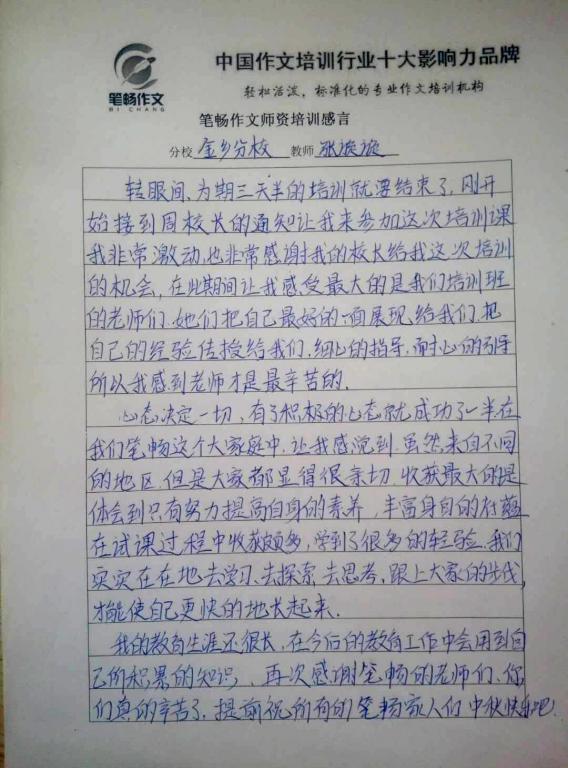 中国作文培训行业十大影响力品牌
轻松活泼，标准化的专业作文培训机构
笔畅作文
BI CHANG
笔畅作文师资培训感言
分校 金乡分校 教师 张
转眼间、为期三天半的培训就要结束了，刚开
始接到周校长的通知让我来参加这次培训课
我非常激动，也非常感谢我的校长给我这次培训
的机会，在此期间让我感受最大的是我们培训班
的老师们，她们把自己最好的一面展现给我们，把
自己的经验传授给我们，细心的指导，耐心的引导
所以我感到老师才是最辛苦的．
心态决定一切，有了积极的心态就成功了一半在
我们笔畅这个大家庭中，让我感觉到 虽然来自不同
的地区，但是大家都显得很亲切，收获最大的是
体会到只有努力提高自身的素养，丰富身自的
在试课过程中收获颇多，学到了很多的经验．我们
实实在在地去学习、去探索、去思考，跟上大家的步伐，
才能使自己更快的地长起来．
我的教育生涯还很长，在今后的教育工作中会用到自
己所积累的知识．再次感谢笔畅的老师们，你
们真的辛苦了，提前祝所有的笔畅家人们 中秋快乐吧．